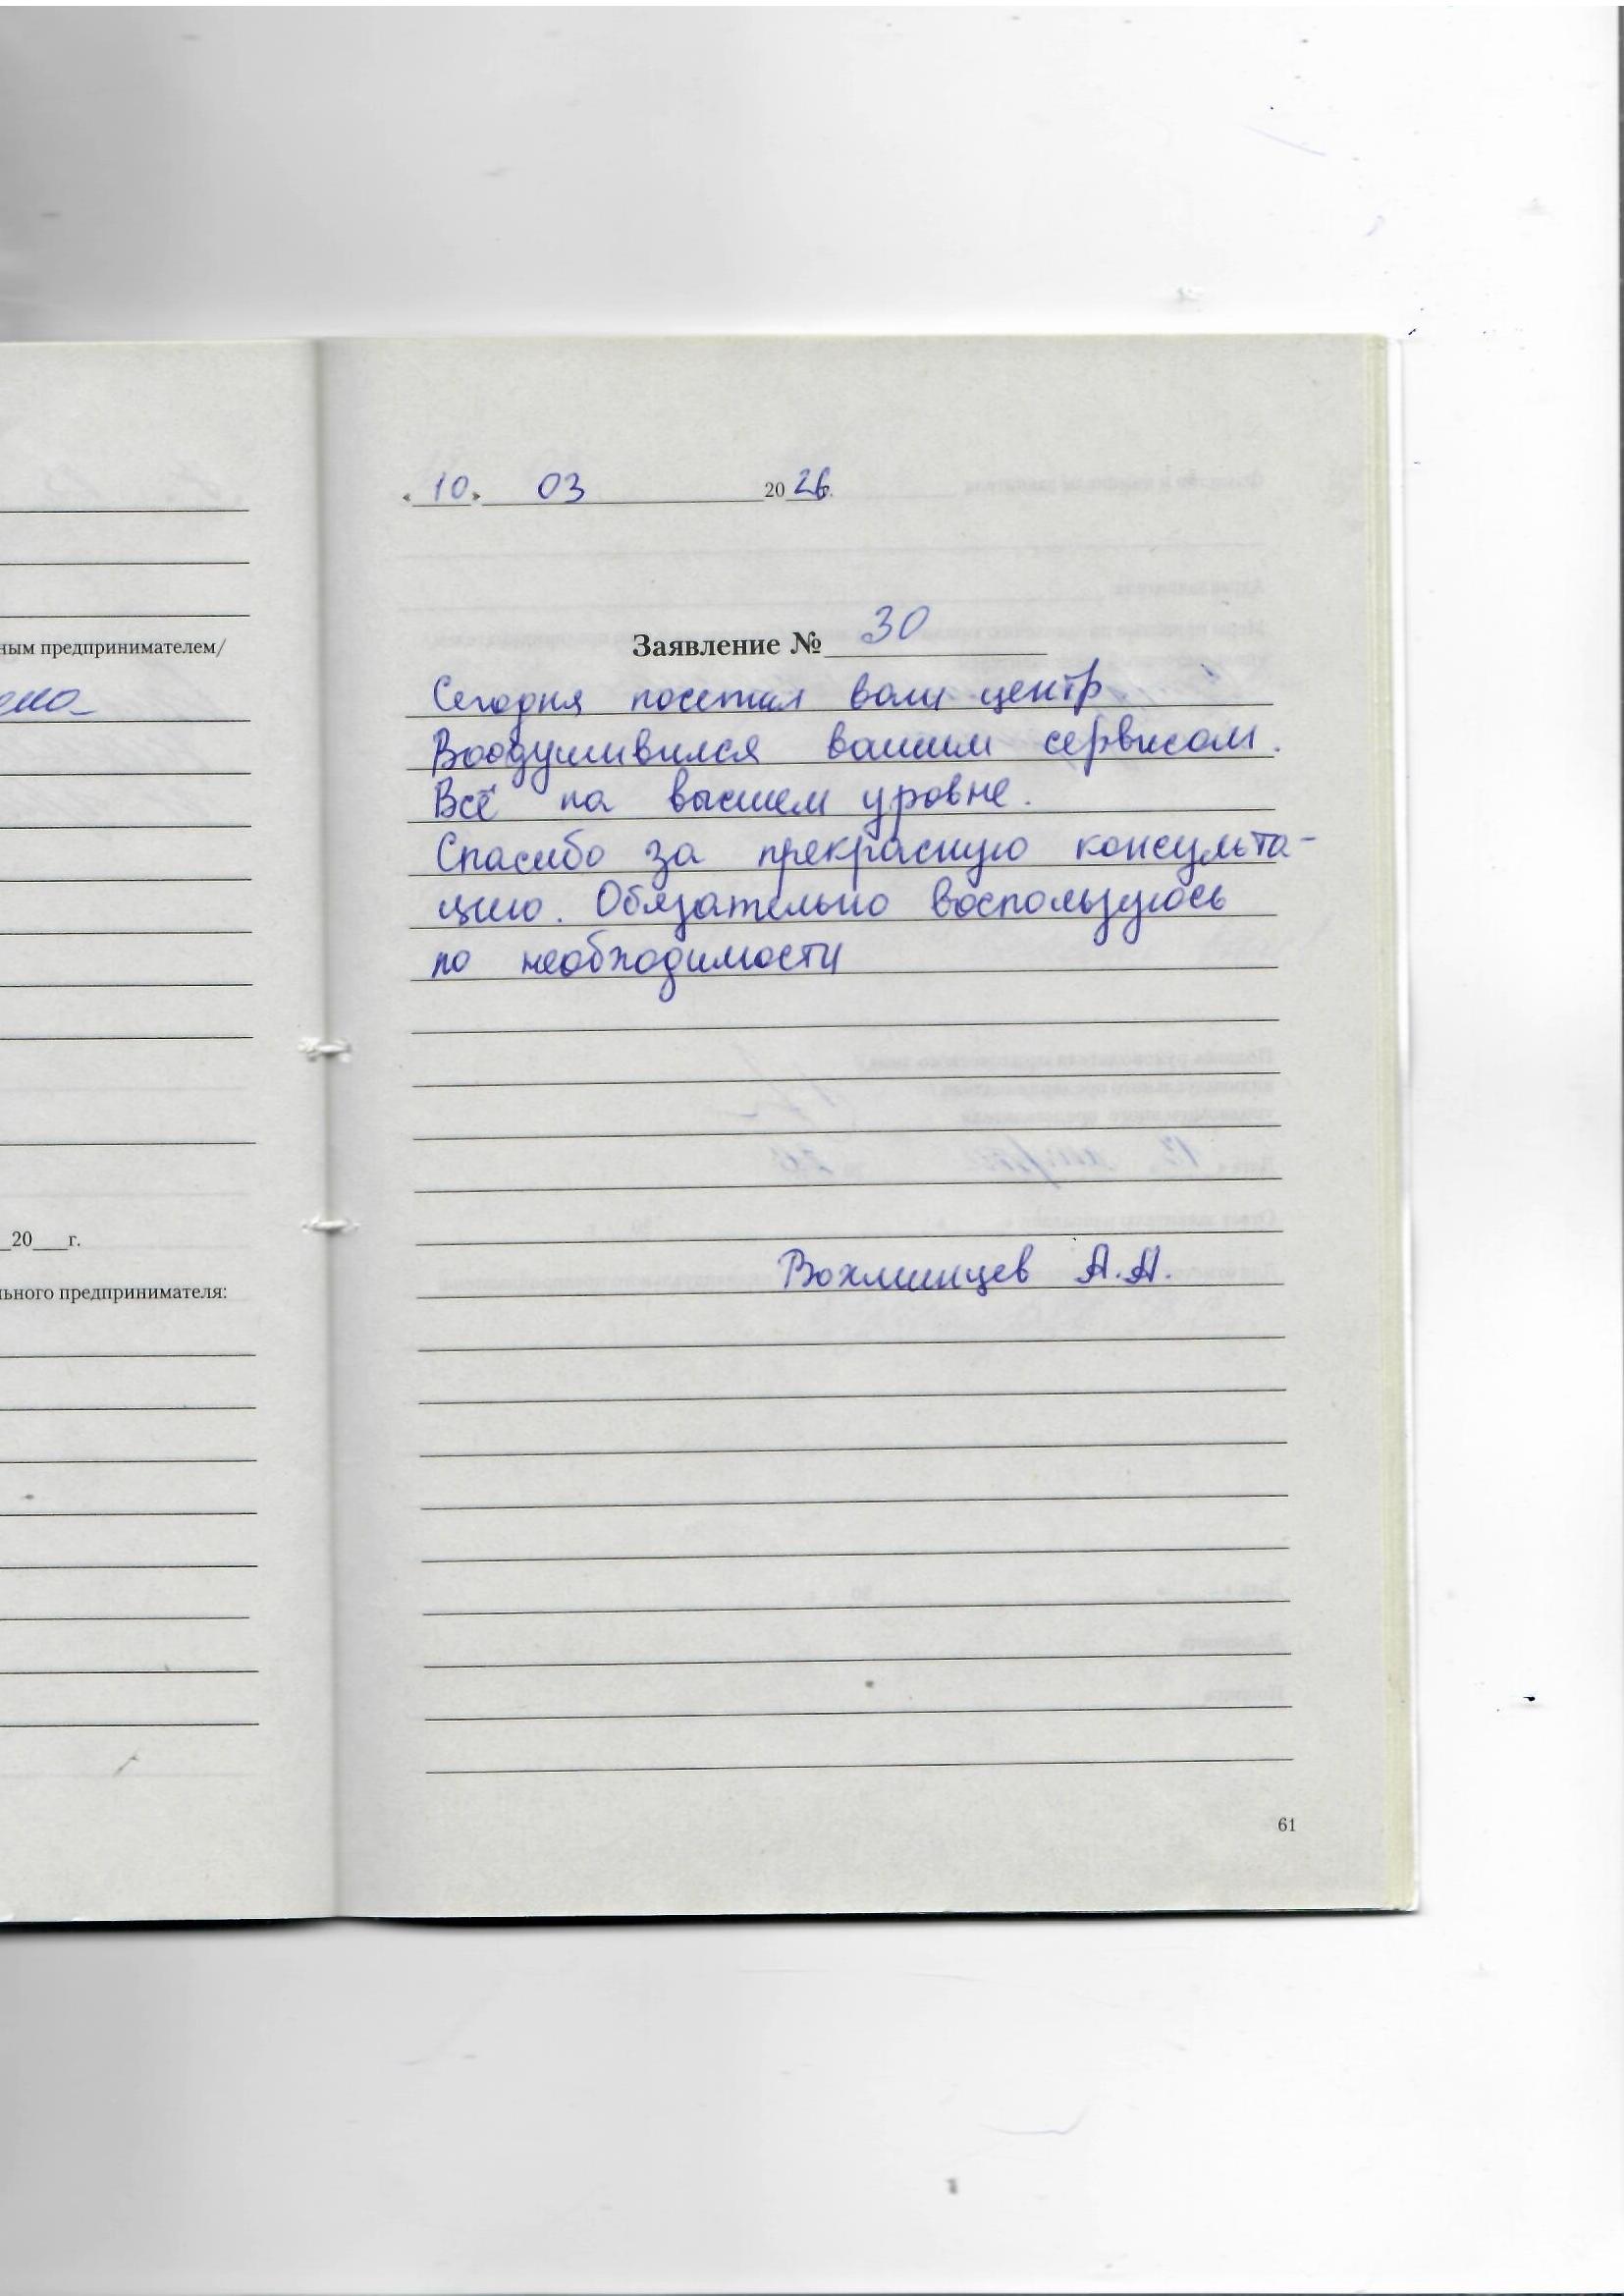 ным предпринимателем/
20 г.
льного предпринимателя:
« 10 » 03 2026г.
Заявление № 30
Сегодня посетил ваш центр
Воодушивился вашим сервисом.
Всё на высшем уровне.
Спасибо за прекрасную консульта-
цию. Обязательно воспользуюсь
по необходимости
Вохминцев А.А.
61